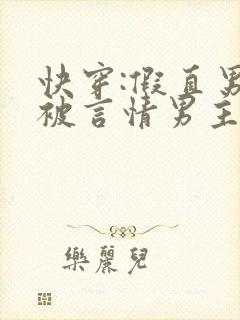 快穿:假直男
被言情男主
樂麗兒